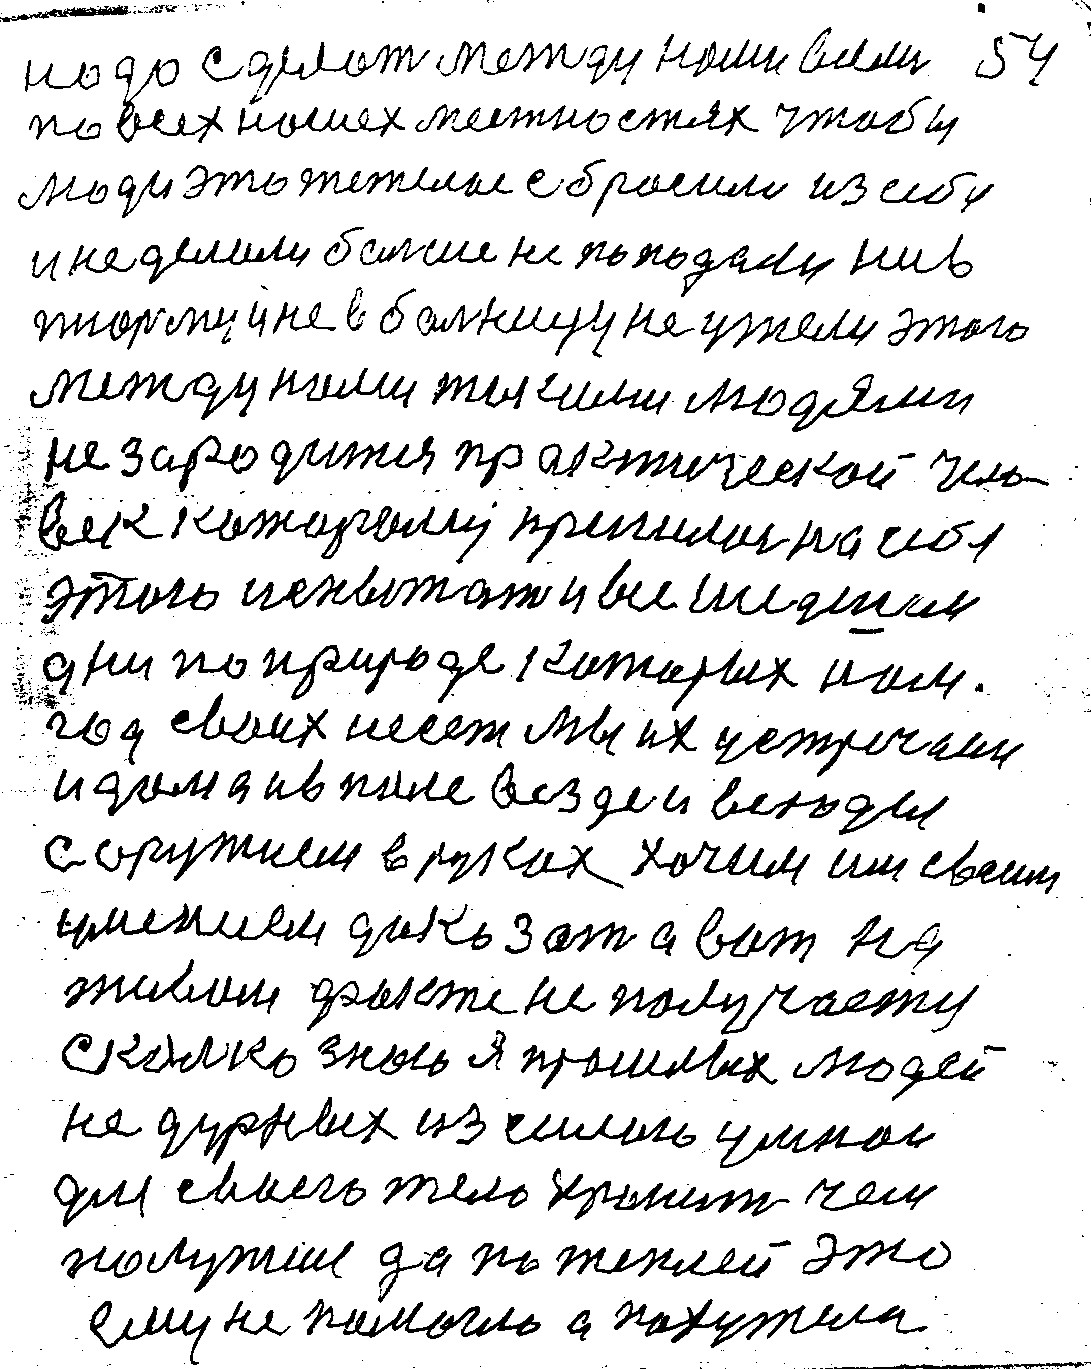 надо сделат между нами всеми 54
по всех нашех местностях чтобы
люди это тежелое сбросили из себя
и не делали болше не поподали ни в
тюрму и не в болницу неужели этого
между нами такими людями
не зародится практической чело-
век которому пришлос на себя
этого испытат и все шедшии
дни по природе которых нам.
год своих несет мы их устречаем
и дома и в поле везде и всюды
с оружием в руках хочим им своим
умением доказат а вот на
живом факте не получаетця
сколко знаю я прошлых людей
не дурных из силою умной
для своего тело хранит чем
полутше да по теплей это
ему не помогло а похужела